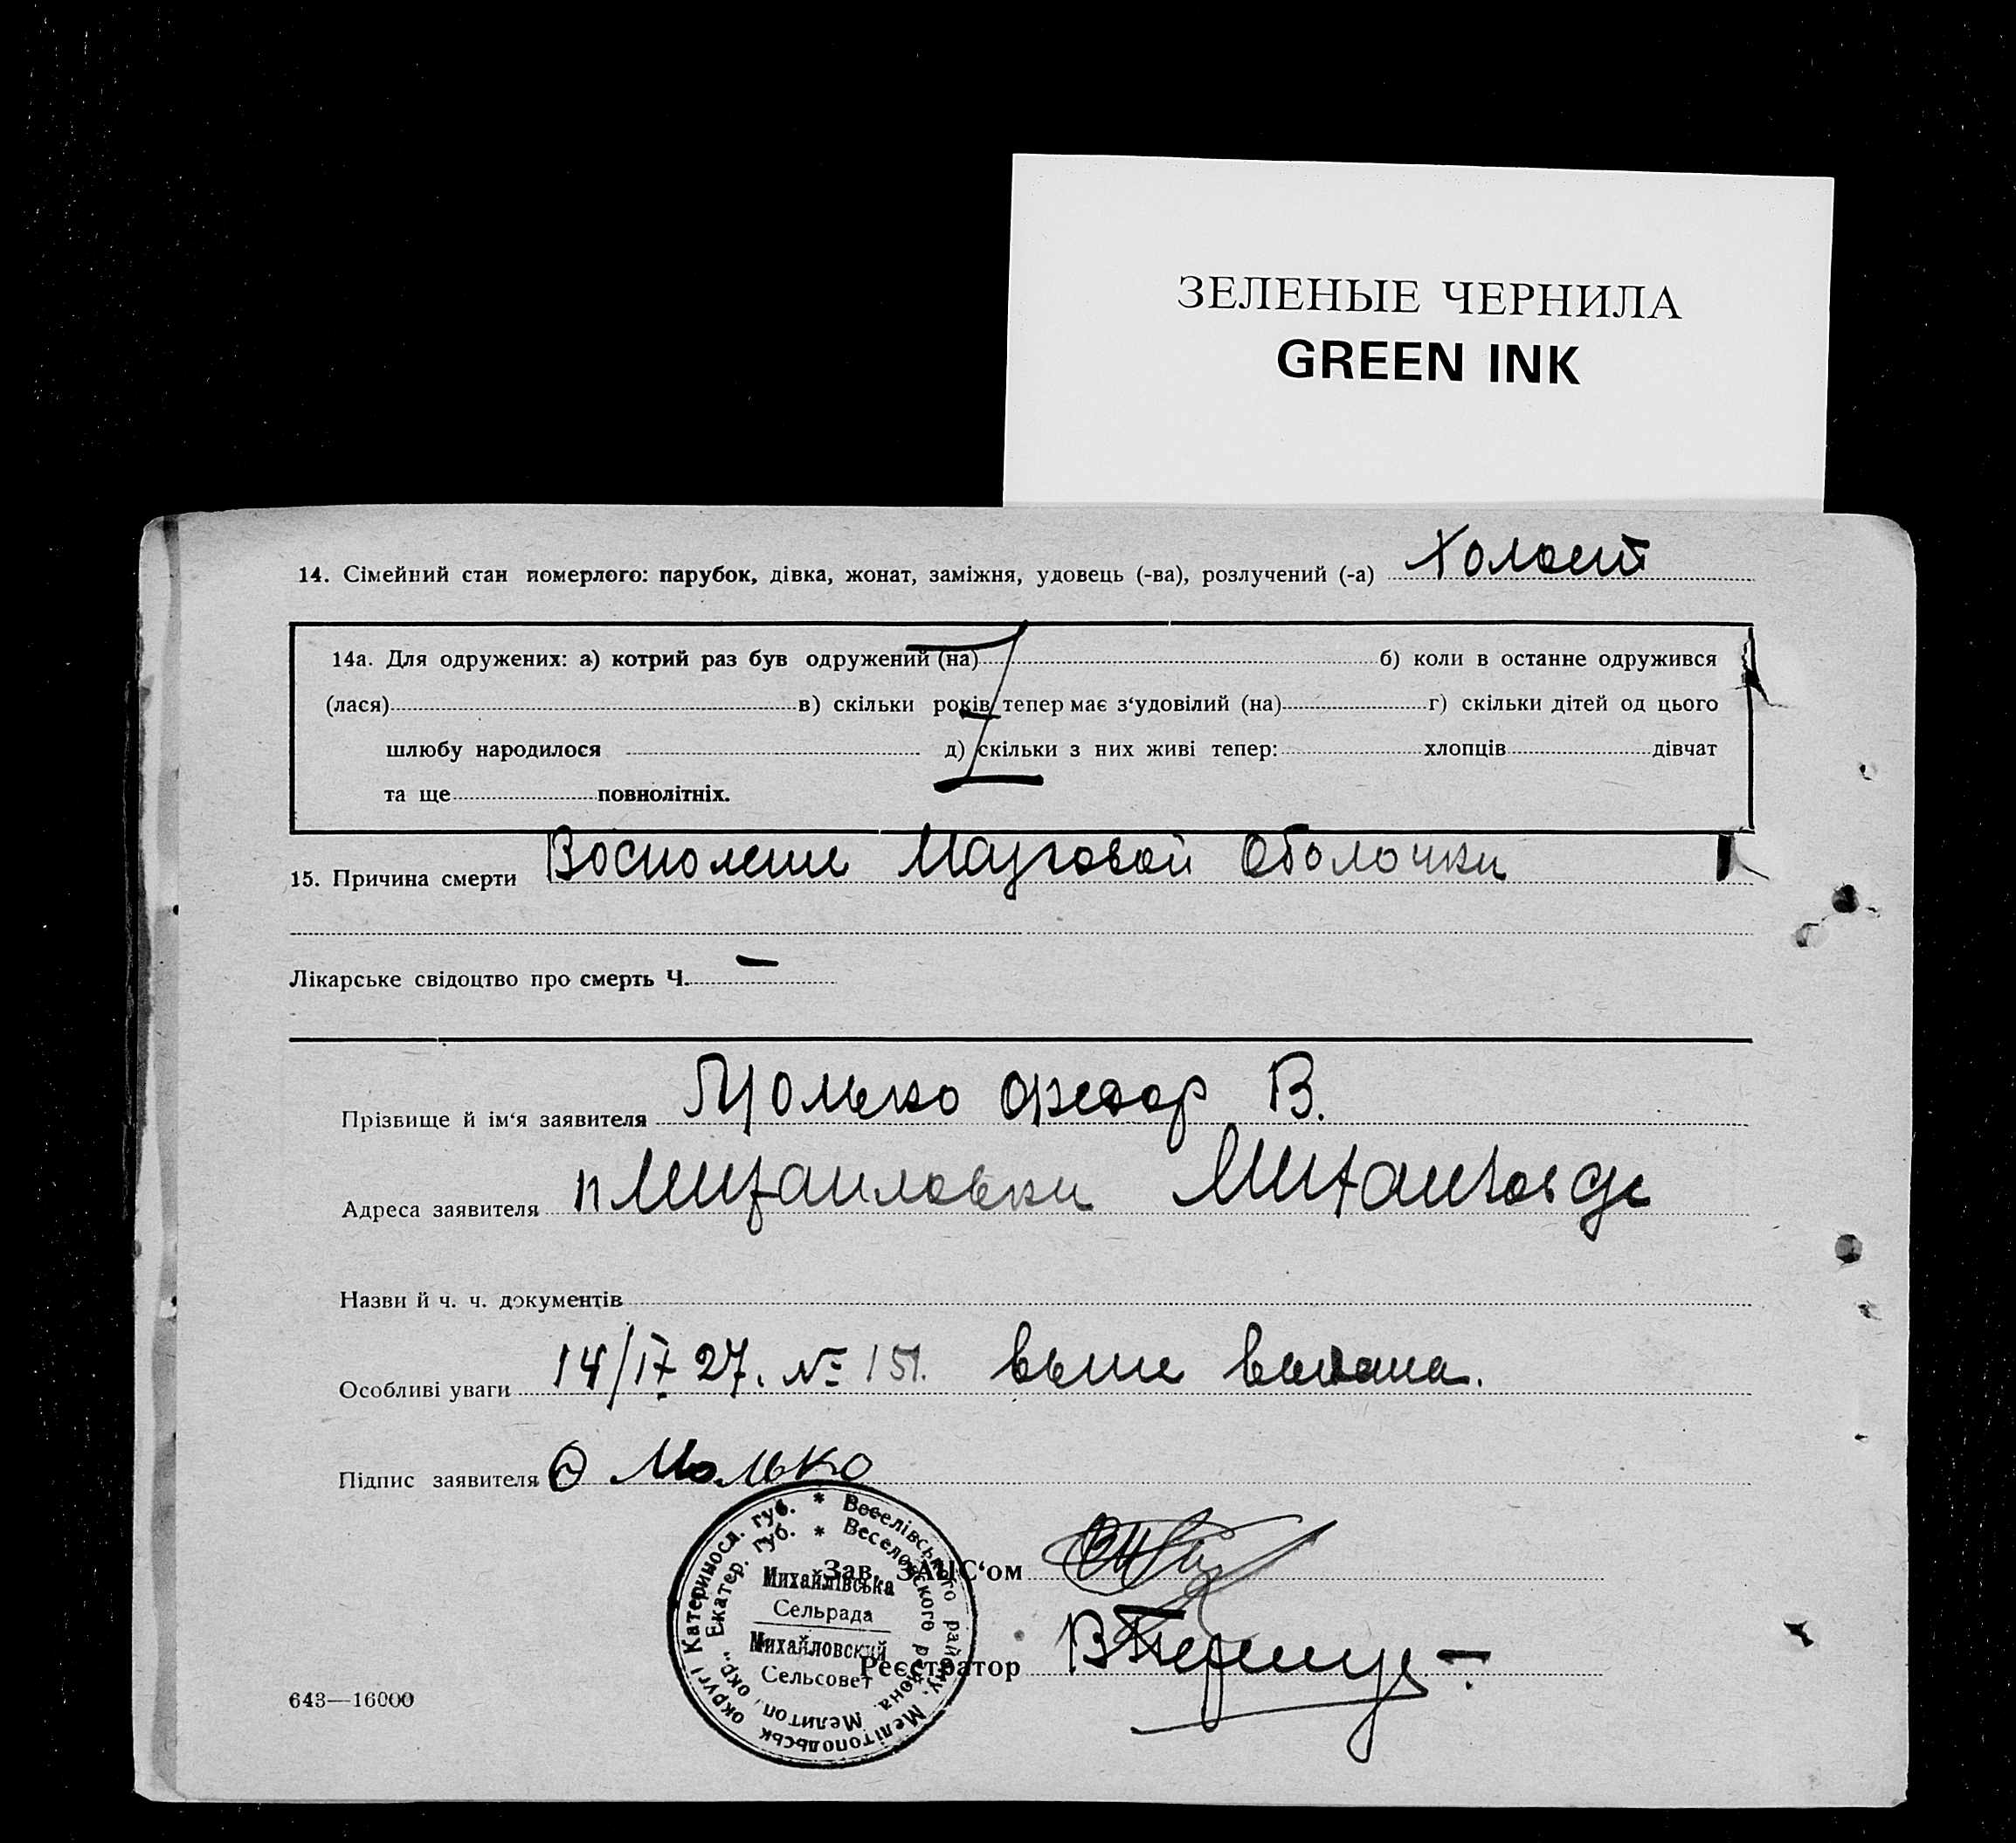 ЗЕЛЕНЫЕ ЧЕРНИЛА
GREEN INK
14. Сімейний стан померлого: парубок, дівка, жонат, заміжня, удовець (-ва), розлучений (-а) Холост
14а. Для одружених: а) котрий раз був одружений (на) б) коли в останне одружився
(лася) в) скільки років тепер має з‘удовілий (на) г) скільки дітей од цього
шлюбу народилося д) скільки з них живі тепер: хлопців дівчат
та ще повнолітніх.
15. Причина смерти Восполение Мазговой Оболочки
Лікарське свідоцтво про смерть Ч. —
Прізвище й ім‘я заявителя Цолько Федор В.
Адреса заявителя п Михаиловки
Назви й ч. ч. документів
Особливі уваги 14/IX 27. № 151. выпись выдана.
Підпис заявителя Молько
Зав. ЗАЦС‘ом
Реєстратор
Катериносл. губ. * Веселівського району, Мелітопольськ округі
Екатер. губ. * Веселовского района, Мелитоп. окр.
Михайлівська
Сельрада
Михайловский
Сельсовет
643—16000